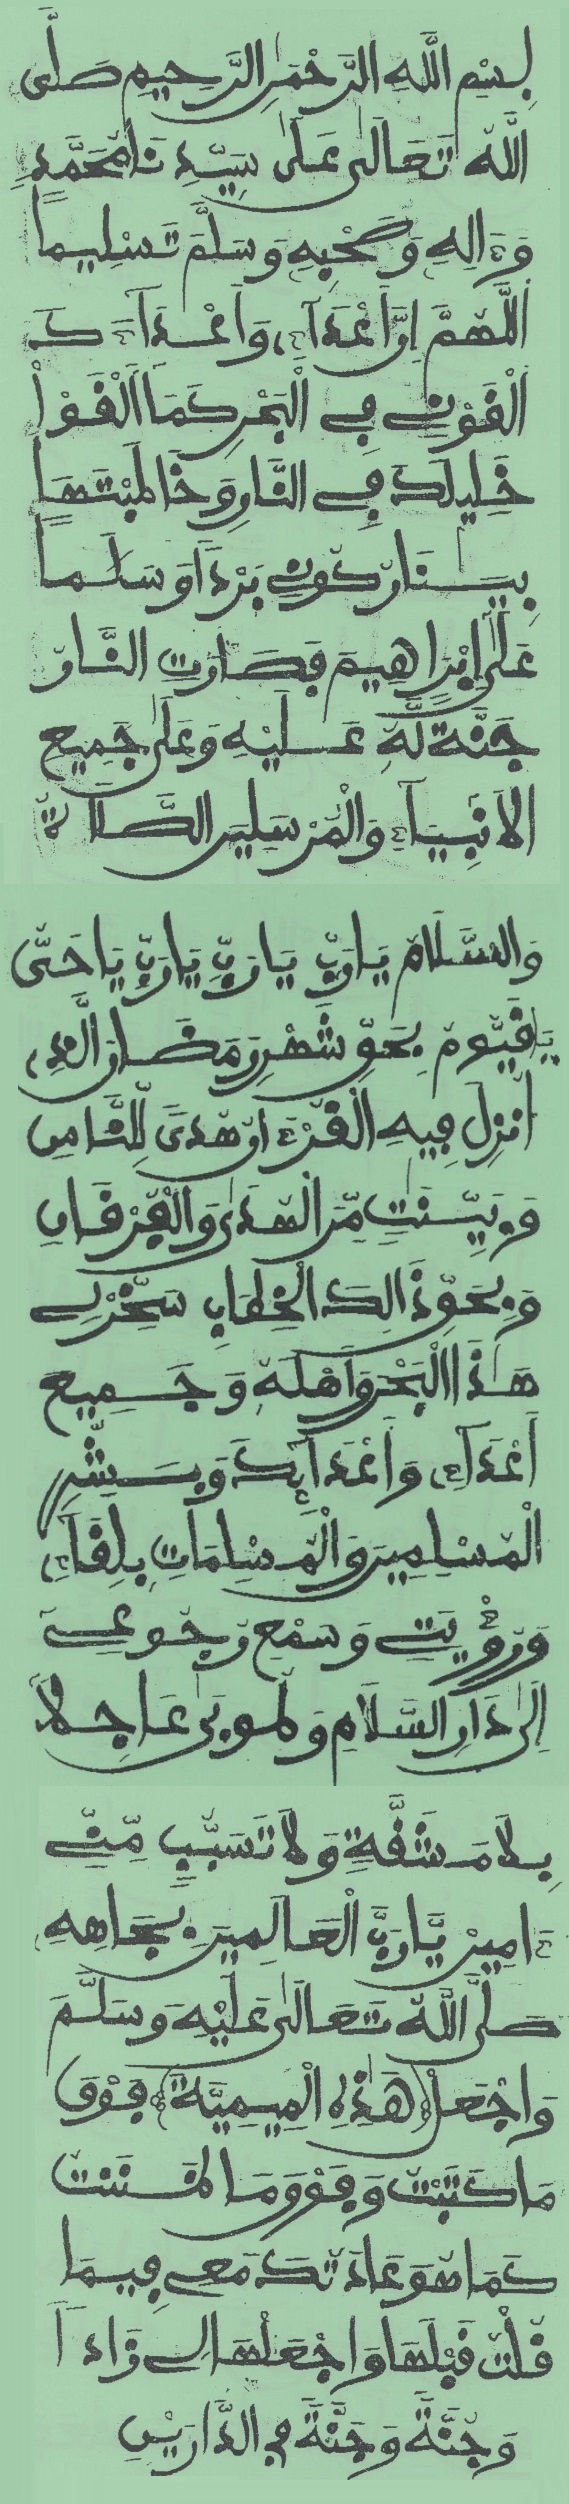 بِسْمِ اللَّهِ الرَّحْمَٰنِ الرَّحِيمِ صَلَّى
اللَّهُ تَعَالَىٰ عَلَىٰ سَيِّدِنَا مُحَمَّدٍ
وَءَالِهِ وَصَحْبِهِ وَسَلَّمَ تَسْلِيمًا
اللَّهُمَّ إِنَّ أَعْدَآءِى وَأَعْدَآءَكَ
أَلْقَوْنِى فِى الْبَحْرِ كَمَا أَلْقَوْا
خَلِيلَكَ فِى النَّارِ وَخَاطَبْتَهَا
بِيَٰنَارُ كُونِى بَرْدًا وَسَلَٰمًا
عَلَىٰ إِبْرَاهِيمَ فَصَارَتِ النَّارُ
جَنَّةً لَّهُ عَلَيْهِ وَعَلَىٰ جَمِيعِ
الْأَنبِيَآءِ وَالْمُرْسَلِينَ الصَّلَاةُ
وَالسَّلَامُ يَارَبِّ يَارَبِّ يَارَبِّ يَاحَىُّ
يَاقَيُّومُ بِحَقِّ شَهْرِ رَمَضَانَ الَّذِى
أُنزِلَ فِيهِ الْقُرْءَانُ هُدًى لِّلنَّاسِ
وَبَيِّنَٰتٍ مِّنَ الْهُدَىٰ وَالْفُرْقَانِ
وَبِحَقِّ ذَالِكَ الْخِطَابِ سَخِّرْ لِى
هَٰذَا الْبَحْرَ وَأَهْلَهُ وَجَمِيعَ
أَعْدَآءِى وَأَعْدَآئِكَ وَبَشِّرِ
الْمُسْلِمِينَ وَالْمُسْلِمَاتِ بِلِقَآءِى
وَرُؤْيَتِى وَسَمْعِ رُجُوعِى
إِلَىٰ دَارِ السَّلَامِ وَطُوبَىٰ عَاجِلًا
بِلَا مَشَقَّةٍ وَلَا تَسَبُّبٍ مِّنِّى
ءَامِينْ يَارَبَّ الْعَالَمِينَ بِجَاهِهِ
صَلَّى اللَّهُ تَعَالَىٰ عَلَيْهِ وَسَلَّمَ
وَاجْعَلْ (هَٰذِهِ الْمِيمِيَّةَ) فَوْقَ
مَا كَتَبْتُ وَفَوْقَ مَا ظَنَنْتُ
كَمَا هُوَ عَادَتُكَ مَعِى فِيمَا
قُلْتُ قَبْلَهَا وَاجْعَلْهَا لِى زَادًا
وَجُنَّةً وَجَنَّةً فِى الدَّارَيْنِ